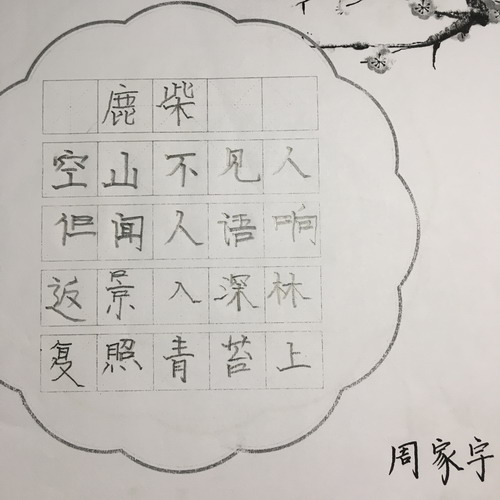 鹿柴
空山不见人
但闻人语响
返景入深林
复照青苔上
周家宇